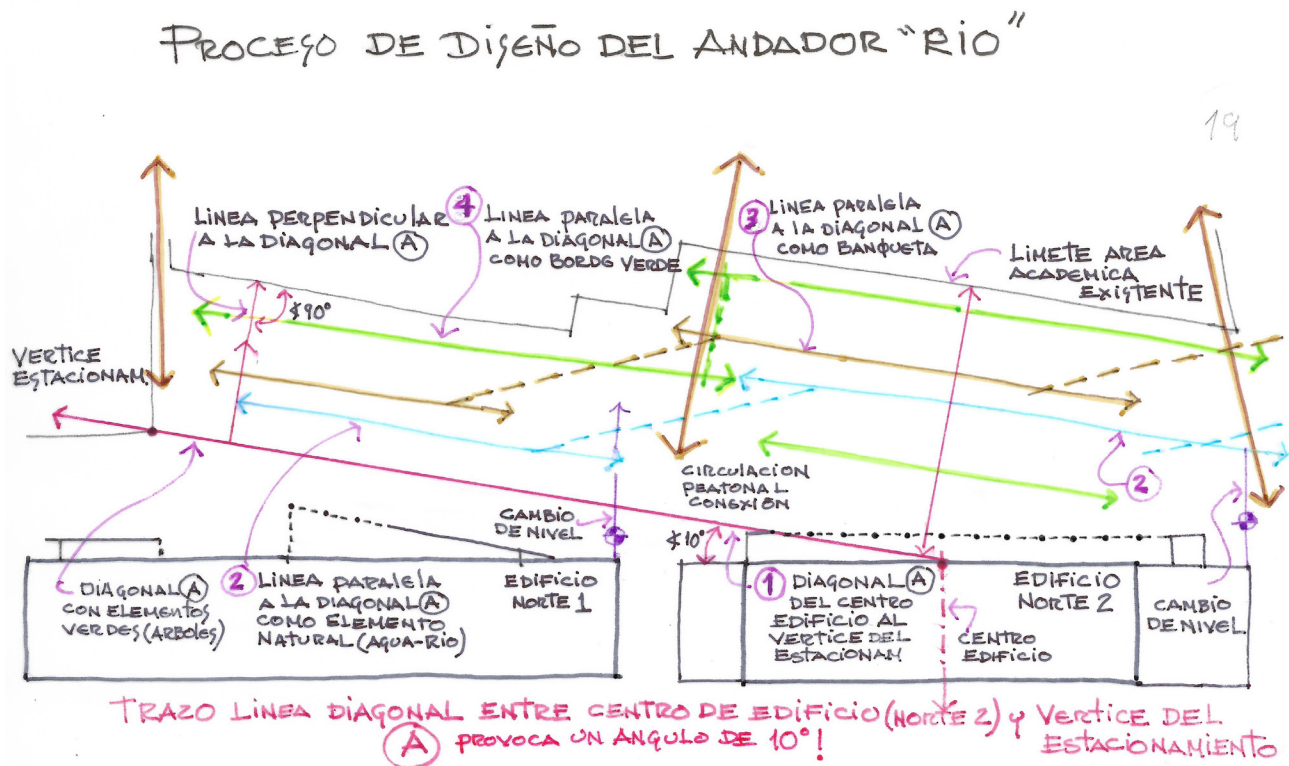 PROCESO DE DISEÑO DEL ANDADOR "RIO"
19
LINEA PERPENDICULAR
A LA DIAGONAL A
4
LINEA PARALELA
A LA DIAGONAL A
COMO BORDE VERDE
3
LINEA PARALELA
A LA DIAGONAL A
COMO BANQUETA
LIMETE AREA
ACADEMICA
EXISTENTE
∡90°
VERTICE
ESTACIONAM.
CIRCULACION
PEATONAL
CONEXIÓN
2
CAMBIO
DE NIVEL
∡10°
DIAGONAL A
CON ELEMENTOS
VERDES (ARBOLES)
2
LINEA PARALELA
A LA DIAGONAL A
COMO ELEMENTO
NATURAL (AGUA-RIO)
EDIFICIO
NORTE 1
1
DIAGONAL A
DEL CENTRO
EDIFICIO AL
VERTICE DEL
ESTACIONAM
EDIFICIO
NORTE 2
CENTRO
EDIFICIO
CAMBIO
DE NIVEL
TRAZO LINEA DIAGONAL ENTRE CENTRO DE EDIFICIO (NORTE 2) y VERTICE DEL
A PROVOCA UN ANGULO DE 10°! ESTACIONAMIENTO